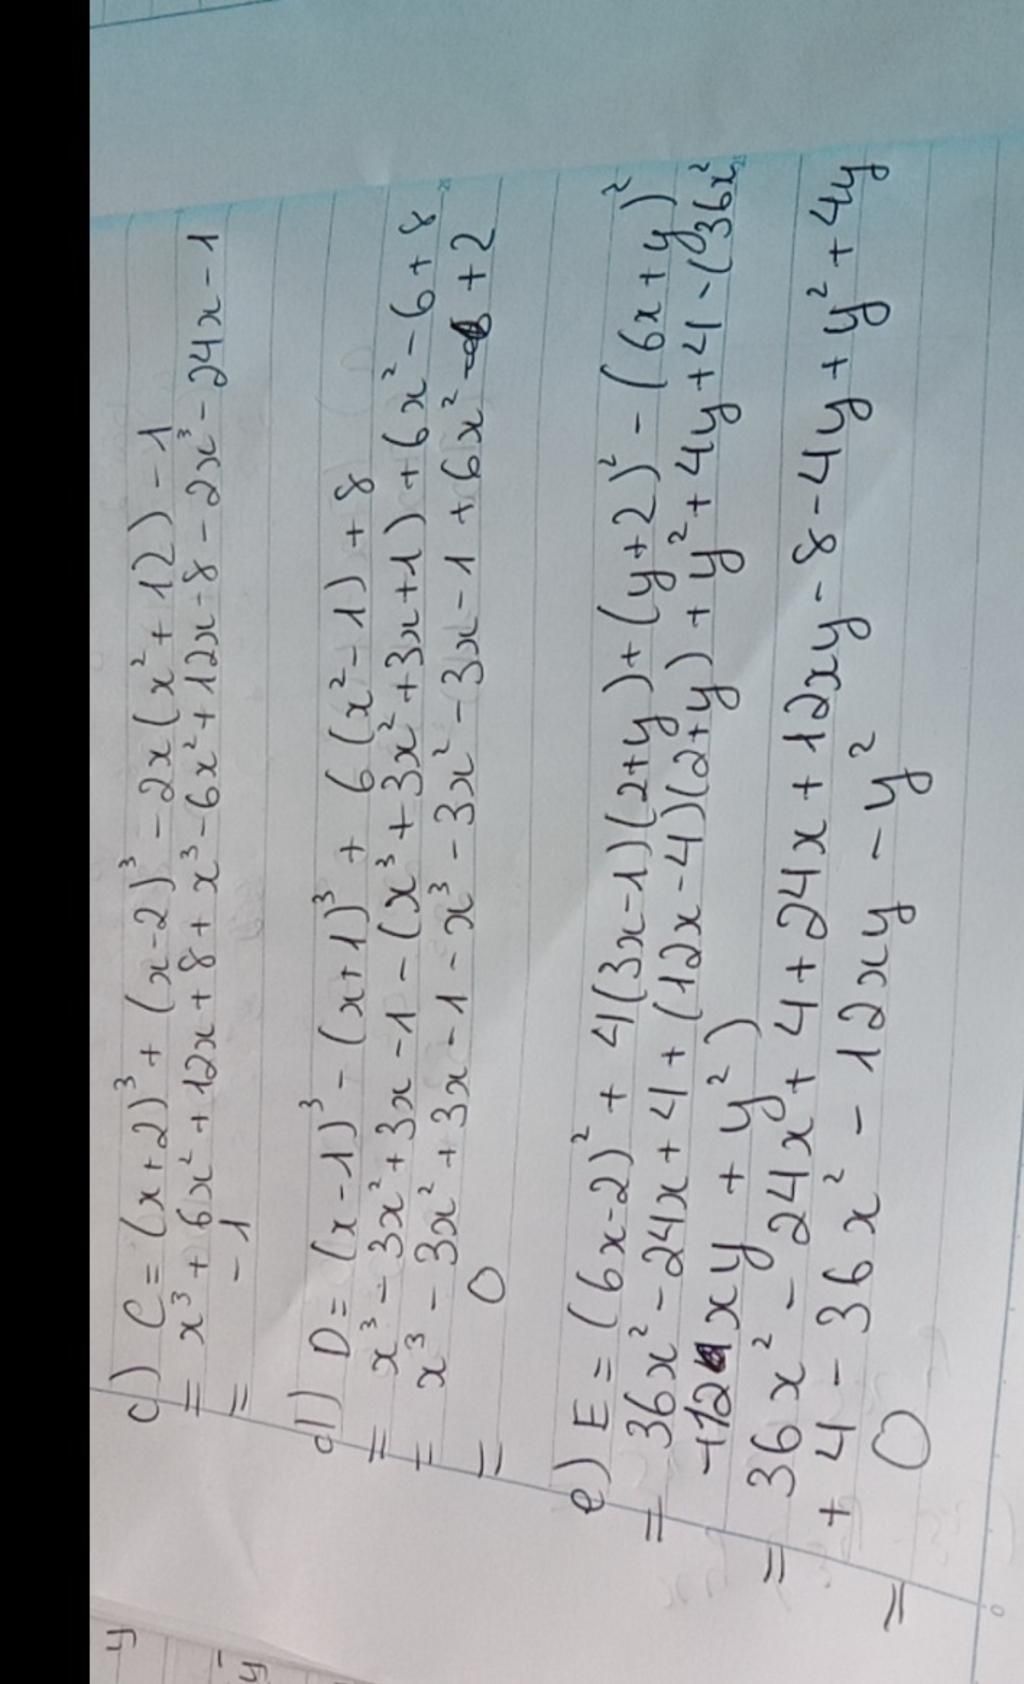 c) C = (x+2)³ + (x-2)³ - 2x(x² + 12) - 1
= x³ + 6x² + 12x + 8 + x³ - 6x² + 12x - 8 - 2x³ - 24x - 1
= -1
d) D = (x-1)³ - (x+1)³ + 6(x² - 1) + 8
= x³ - 3x² + 3x - 1 - (x³ + 3x² + 3x + 1) + 6x² - 6 + 8
= x³ - 3x² + 3x - 1 - x³ - 3x² - 3x - 1 + 6x² + 2
= 0
e) E = (6x-2)² + 4(3x-1)(2+y) + (y+2)² - (6x+y)²
= 36x² - 24x + 4 + (12x-4)(2+y) + y² + 4y + 4 - (36x²
+12xy + y²)
= 36x² - 24x + 4 + 24x + 12xy - 8 - 4y + y² + 4y
+ 4 - 36x² - 12xy - y²
= 0
y
y